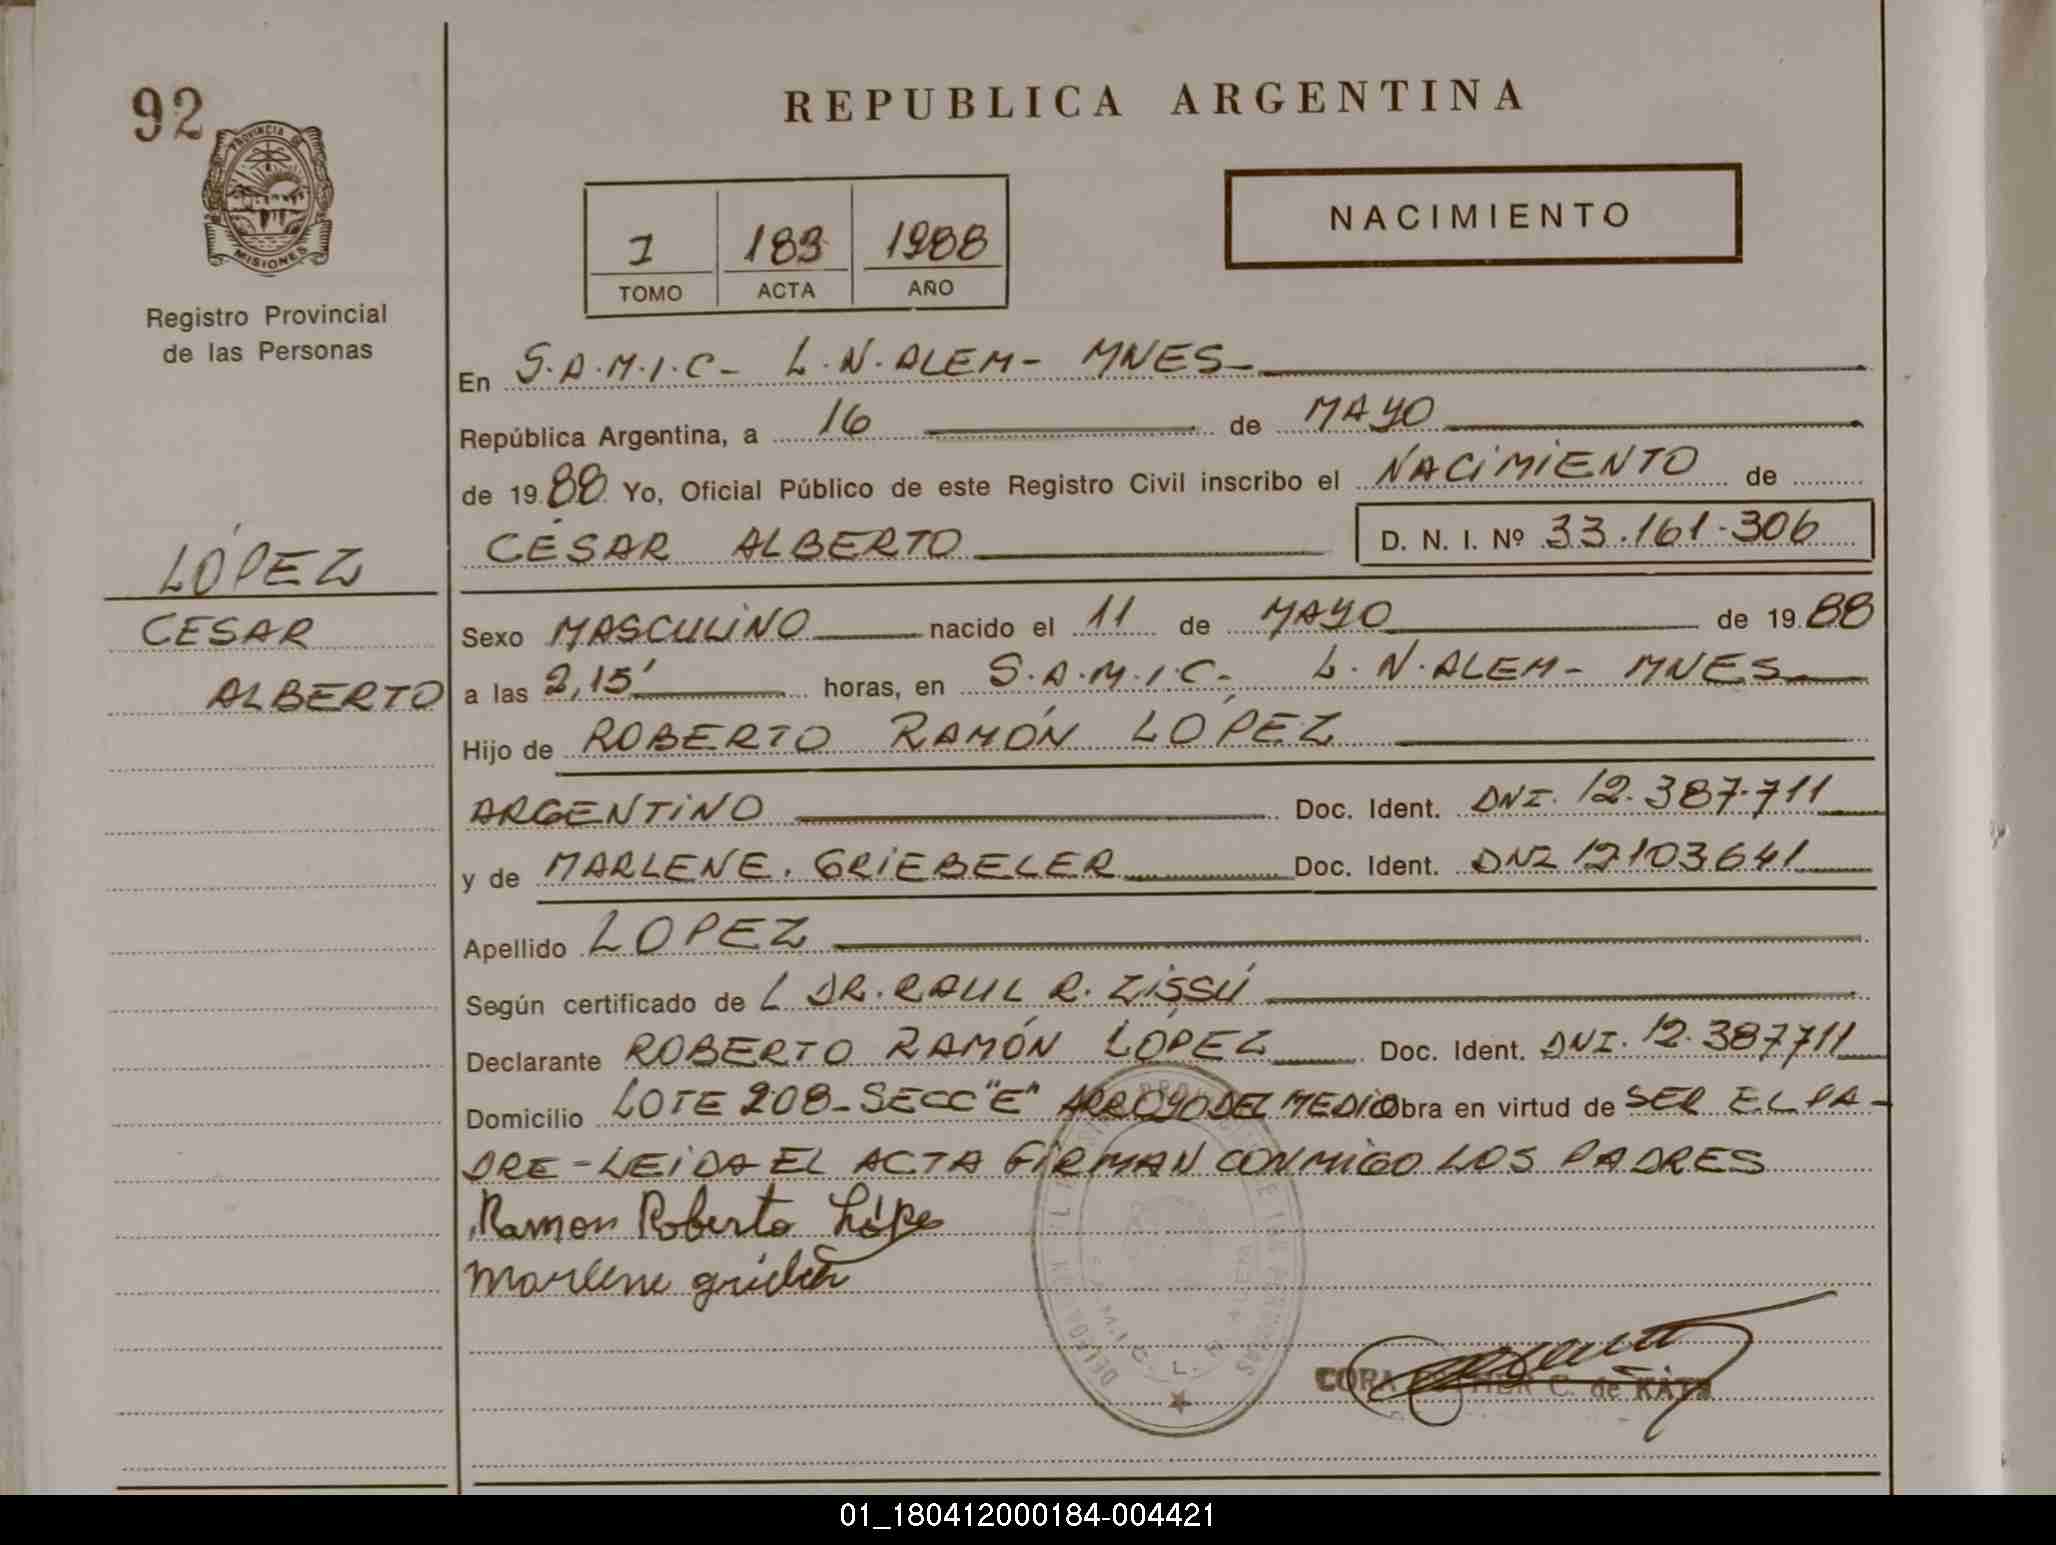 92
PROVINCIA DE
MISIONES
Registro Provincial
de las Personas
LÓPEZ
CESAR
ALBERTO
REPUBLICA ARGENTINA
NACIMIENTO
I 183 1988
TOMO ACTA AÑO
En S.A.M.I.C- L.N.ALEM- MNES-
República Argentina, a 16 de MAYO
de 1988 Yo, Oficial Público de este Registro Civil inscribo el NACIMIENTO de
CÉSAR ALBERTO D. N. I. Nº 33.161.306
Sexo MASCULINO nacido el 11 de MAYO de 1988
a las 2,15' horas, en S.A.M.I.C- L.N.ALEM- MNES
Hijo de ROBERTO RAMÓN LÓPEZ
ARGENTINO Doc. Ident. DNI. 12.387.711
y de MARLENE. GRIEBELER Doc. Ident. DNI 12103641
Apellido LOPEZ
Según certificado de L DR. RAUL R. ZISSÚ
Declarante ROBERTO RAMÓN LÓPEZ Doc. Ident. DNI. 12.387711
Domicilio LOTE 208-SECC "E" ARROYO DEL MEDIO Obra en virtud de SER EL PA-
DRE - LEIDA EL ACTA FIRMAN CONMIGO LOS PADRES
Ramon Roberto Lópe
Marlene
CORA C. de
01_180412000184-004421